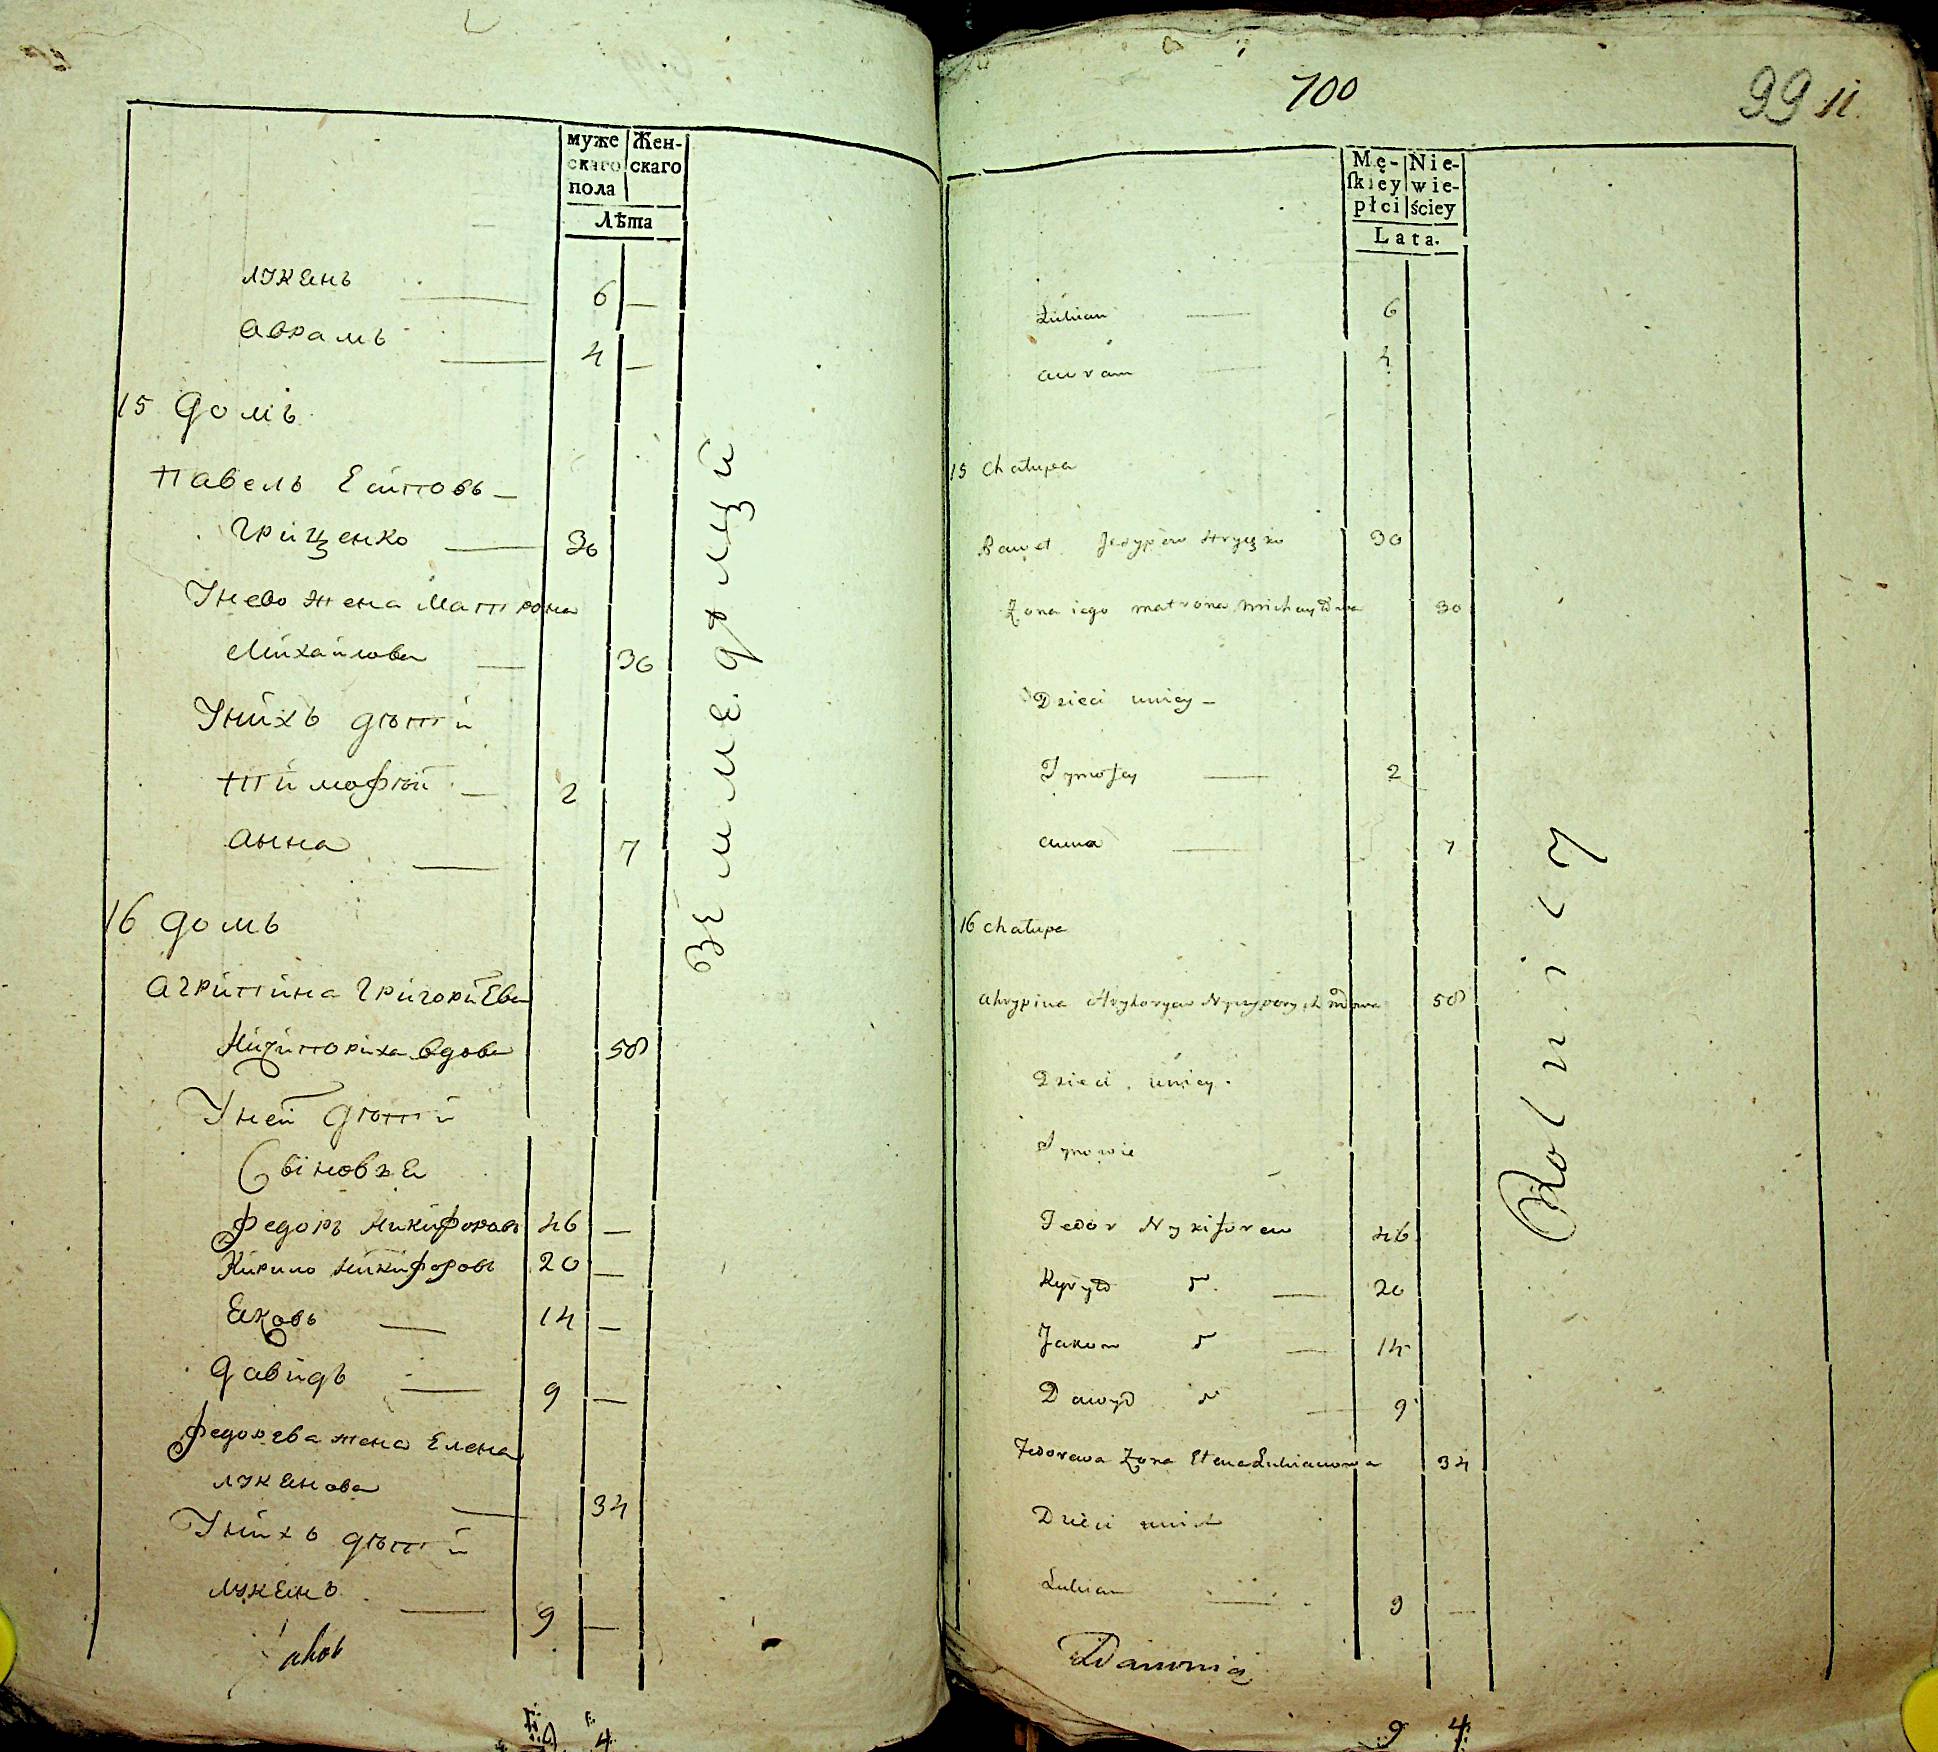 муже Жен-
скаго скаго
пола
Лѣта
лукянъ — 6 —
аврамъ — 4 —
15 домъ
павелъ Еsиповъ —
грищенко — 30
Унево жена Матрона
Михайлова — 30
Унихъ дѣтй
тимофѣй — 2
анна — 7
16 домъ
агрипина григорйева
Никипориха вдова 50
Уней дѣтй
Сыновя
федоръ Никифоровъ 46 —
Кирило Никифоровъ 20 —
Яковъ — 14 —
давидъ — 9 —
федорева жена Елена
лукянова — 34
Унихъ дѣтй
лукянъ — 9 —
4
700
99 11
Mę- Nie-
ſkiey wie-
płci ściey
Lata.
Łukian — 6
auram — 4
15 Chałupa
Paweł Jesypow Hryczko 30
Żona iego matrona Michayłowa 30
Dzieci unicy —
Tymofey — 2
anna — 7
16 Chałupa
ahrypina Hryhoryew 50
Dzieci unicy.
Synowie
Fedor Nykiforew 46
Kyryło — 20
Jakow — 14
Dawyd — 9
Fedorowa Żona Elena Łukianowa 34
Dzieci unich
Łukian — 9 —
Rolnicy
9 4